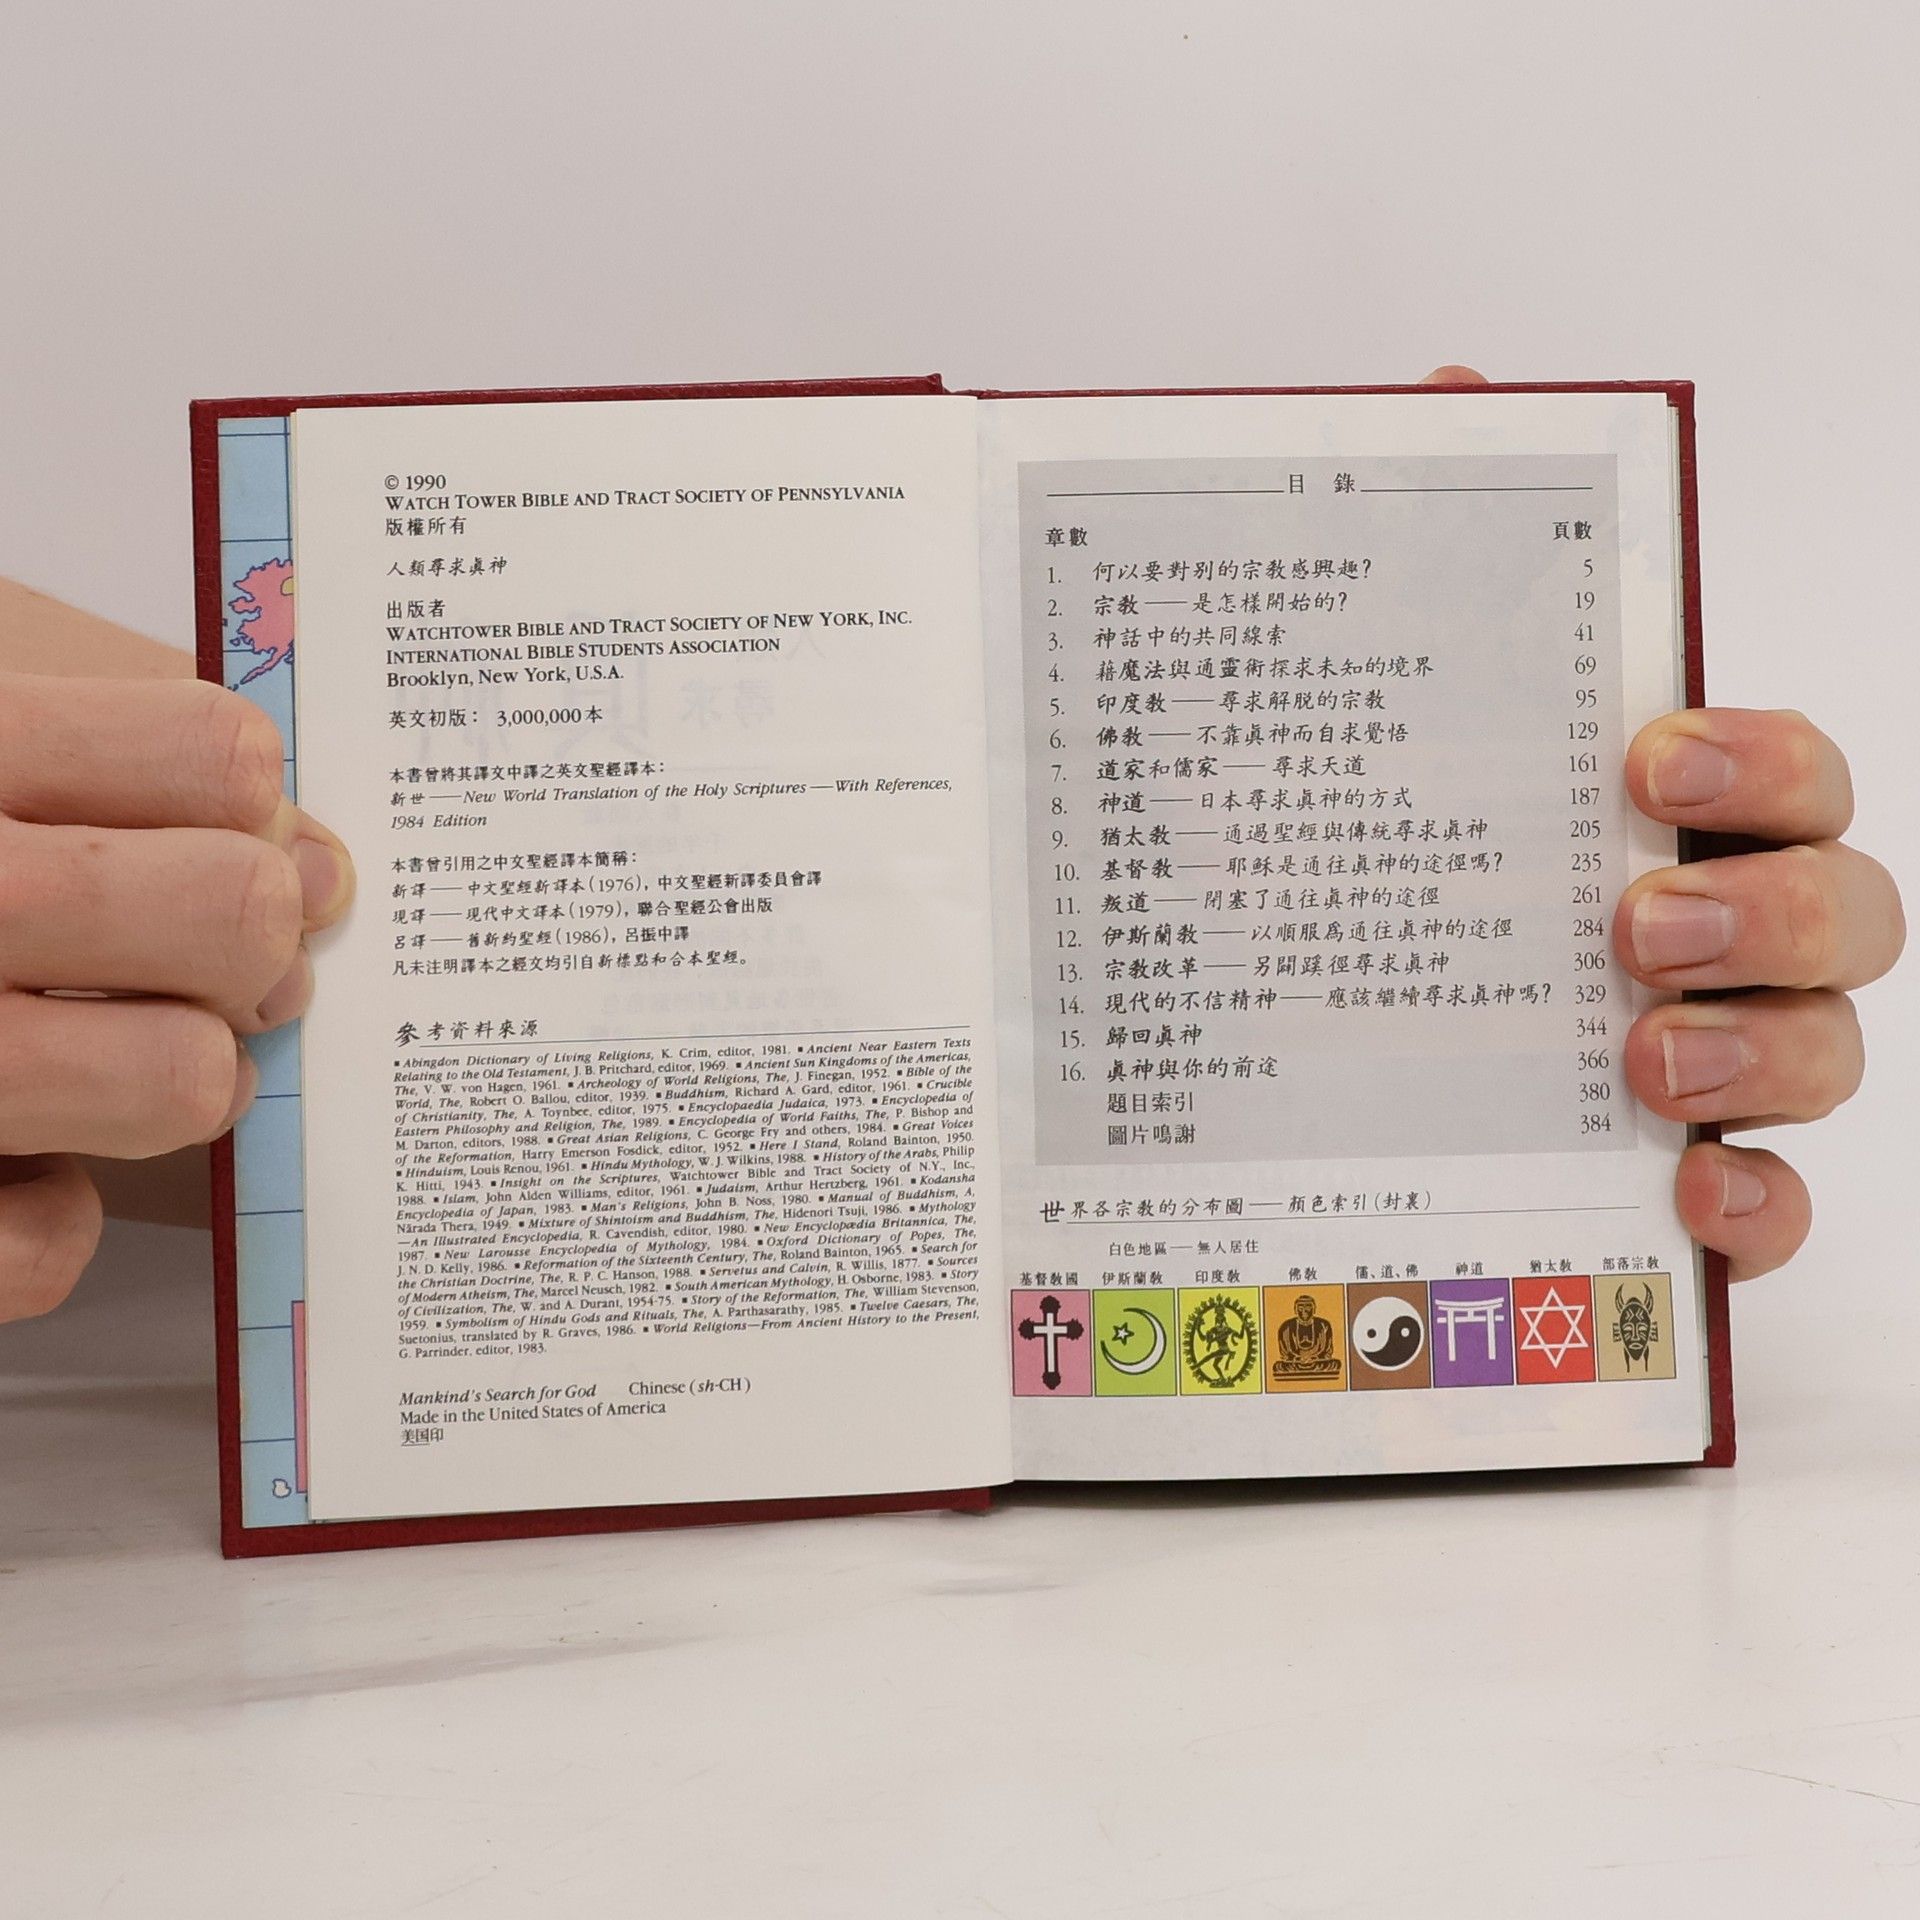 © 1990
WATCH TOWER BIBLE AND TRACT SOCIETY OF PENNSYLVANIA
版權所有
人類尋求眞神
出版者
WATCHTOWER BIBLE AND TRACT SOCIETY OF NEW YORK, INC.
INTERNATIONAL BIBLE STUDENTS ASSOCIATION
Brooklyn, New York, U.S.A.
英文初版： 3,000,000本
本書曾將其譯文中譯之英文聖經譯本：
新世——New World Translation of the Holy Scriptures—With References,
1984 Edition
本書曾引用之中文聖經譯本簡稱：
新譯——中文聖經新譯本(1976)，中文聖經新譯委員會譯
現譯——現代中文譯本(1979)，聯合聖經公會出版
呂譯——舊新約聖經(1986)，呂振中譯
凡未注明譯本之經文均引自新標點和合本聖經。
參考資料來源
▪ Abingdon Dictionary of Living Religions, K. Crim, editor, 1981. ▪ Ancient Near Eastern Texts
Relating to the Old Testament, J. B. Pritchard, editor, 1969. ▪ Ancient Sun Kingdoms of the Americas,
The, V. W. von Hagen, 1961. ▪ Archeology of World Religions, The, J. Finegan, 1952. ▪ Bible of the
World, The, Robert O. Ballou, editor, 1939. ▪ Buddhism, Richard A. Gard, editor, 1961. ▪ Crucible
of Christianity, The, A. Toynbee, editor, 1975. ▪ Encyclopaedia Judaica, 1973. ▪ Encyclopedia of
Eastern Philosophy and Religion, The, 1989. ▪ Encyclopedia of World Faiths, The, P. Bishop and
M. Darton, editors, 1988. ▪ Great Asian Religions, C. George Fry and others, 1984. ▪ Great Voices
of the Reformation, Harry Emerson Fosdick, editor, 1952. ▪ Here I Stand, Roland Bainton, 1950.
▪ Hinduism, Louis Renou, 1961. ▪ Hindu Mythology, W. J. Wilkins, 1988. ▪ History of the Arabs, Philip
K. Hitti, 1943. ▪ Insight on the Scriptures, Watchtower Bible and Tract Society of N.Y., Inc.,
1988. ▪ Islam, John Alden Williams, editor, 1961. ▪ Judaism, Arthur Hertzberg, 1961. ▪ Kodansha
Encyclopedia of Japan, 1983. ▪ Man's Religions, John B. Noss, 1980. ▪ Manual of Buddhism, A,
Nārada Thera, 1949. ▪ Mixture of Shintoism and Buddhism, The, Hidenori Tsuji, 1986. ▪ Mythology
—An Illustrated Encyclopedia, R. Cavendish, editor, 1980. ▪ New Encyclopædia Britannica, The,
1987. ▪ New Larousse Encyclopedia of Mythology, 1984. ▪ Oxford Dictionary of Popes, The,
J. N. D. Kelly, 1986. ▪ Reformation of the Sixteenth Century, The, Roland Bainton, 1965. ▪ Search for
the Christian Doctrine, The, R. P. C. Hanson, 1988. ▪ Servetus and Calvin, R. Willis, 1877. ▪ Sources
of Modern Atheism, The, Marcel Neusch, 1982. ▪ South American Mythology, H. Osborne, 1983. ▪ Story
of Civilization, The, W. and A. Durant, 1954-75. ▪ Story of the Reformation, The, William Stevenson,
1959. ▪ Symbolism of Hindu Gods and Rituals, The, A. Parthasarathy, 1985. ▪ Twelve Caesars, The,
Suetonius, translated by R. Graves, 1986. ▪ World Religions—From Ancient History to the Present,
G. Parrinder, editor, 1983.
Mankind's Search for God Chinese (sh-CH)
Made in the United States of America
美国印
目 錄
章數 頁數
1. 何以要對別的宗敎感興趣？ 5
2. 宗敎——是怎樣開始的？ 19
3. 神話中的共同線索 41
4. 藉魔法與通靈術探求未知的境界 69
5. 印度敎——尋求解脱的宗敎 95
6. 佛敎——不靠眞神而自求覺悟 129
7. 道家和儒家——尋求天道 161
8. 神道——日本尋求眞神的方式 187
9. 猶太敎——通過聖經與傳統尋求眞神 205
10. 基督敎——耶穌是通往眞神的途徑嗎？ 235
11. 叛道——閉塞了通往眞神的途徑 261
12. 伊斯蘭敎——以順服爲通往眞神的途徑 284
13. 宗敎改革——另闢蹊徑尋求眞神 306
14. 現代的不信精神——應該繼續尋求眞神嗎？ 329
15. 歸回眞神 344
16. 眞神與你的前途 366
題目索引 380
圖片鳴謝 384
世界各宗敎的分布圖——顏色索引(封裏)
白色地區——無人居住
基督敎國 伊斯蘭敎 印度敎 佛敎 儒、道、佛 神道 猶太敎 部落宗敎